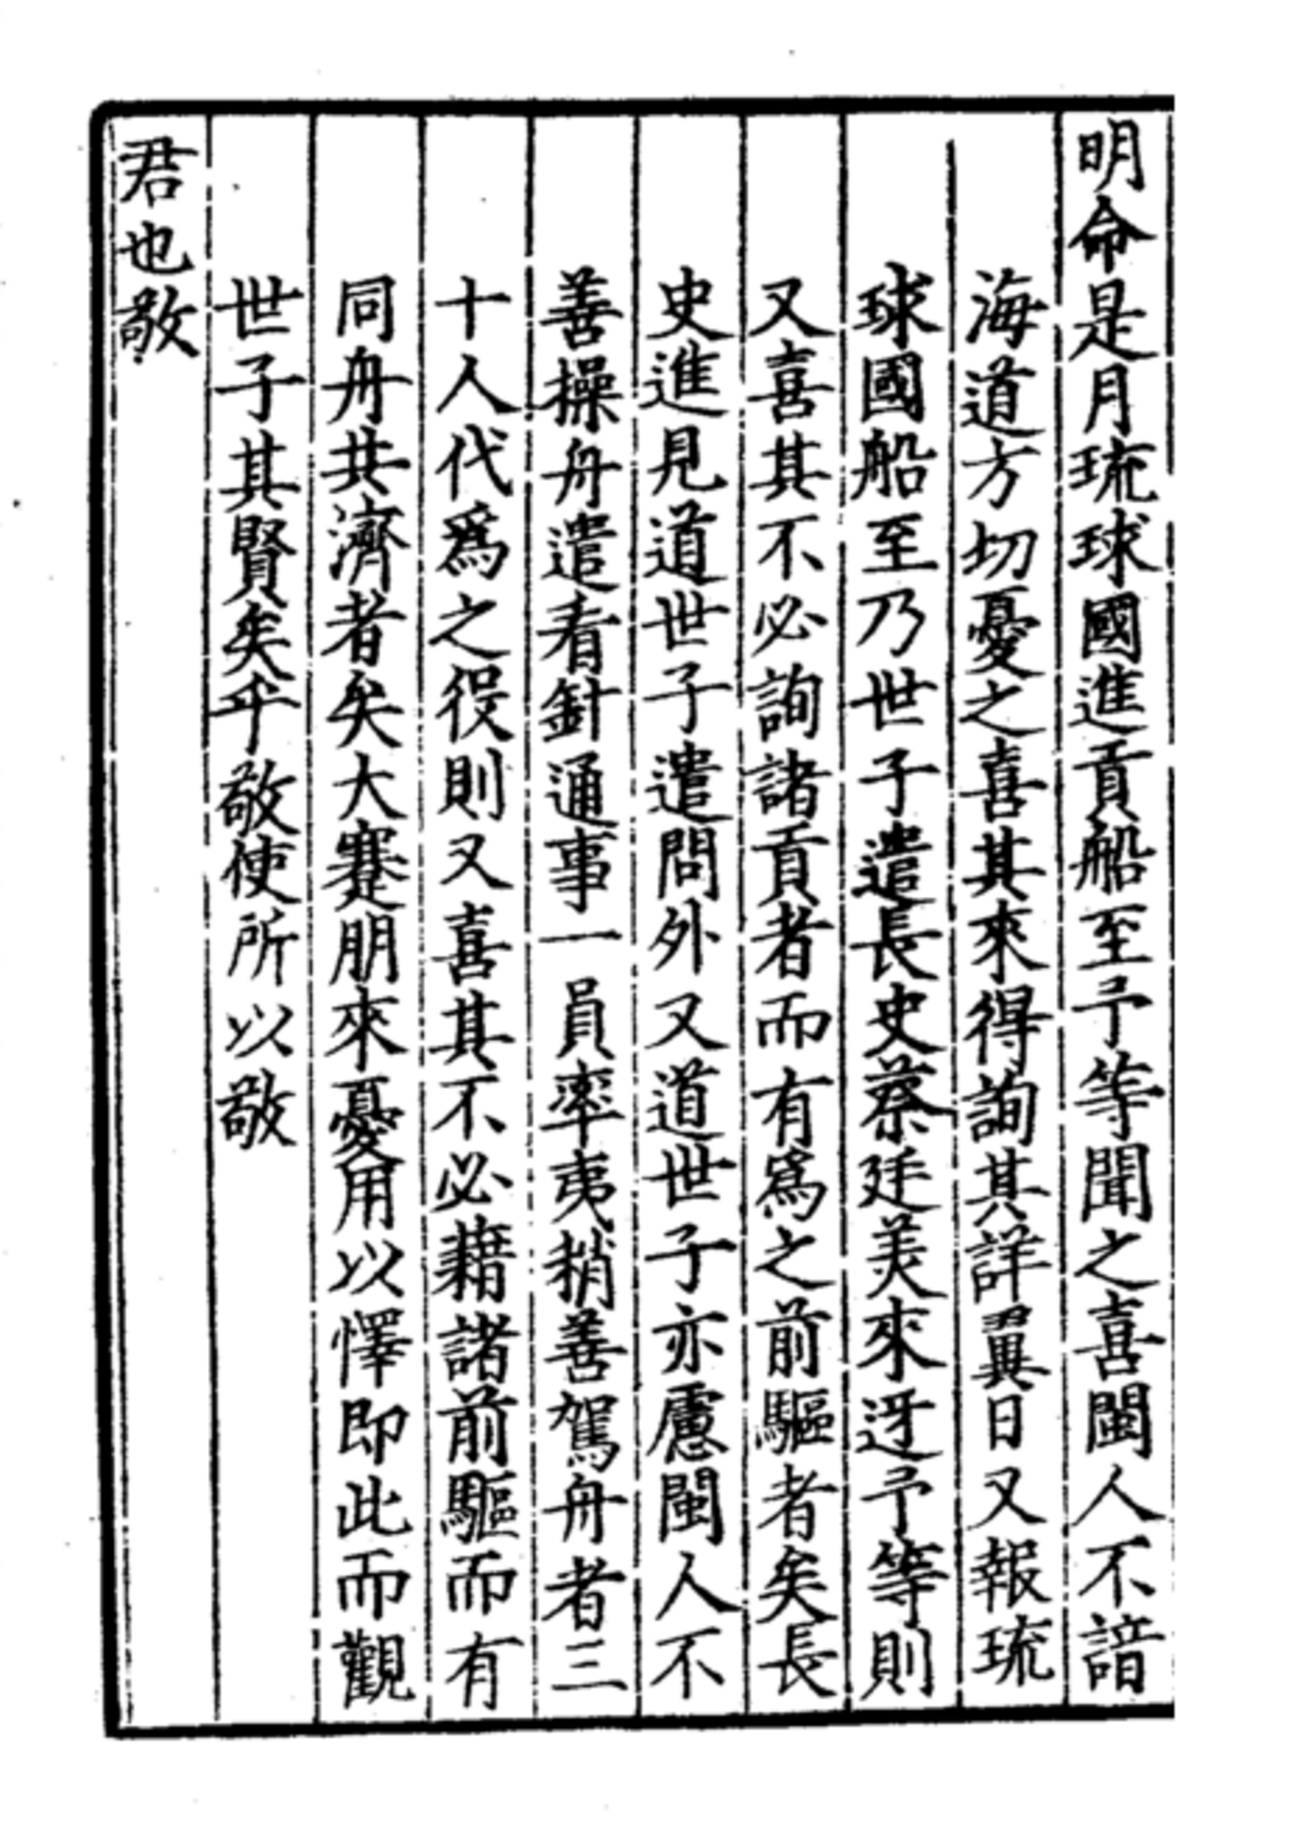 明命是月琉球國進貢船至予等聞之喜閩人不諳
海道方切憂之喜其來得詢其詳翼日又報琉
球國船至乃世子遣長史蔡廷美來迓予等則
又喜其不必詢諸貢者而有爲之前驅者矣長
史進見道世子遣問外又道世子亦慮閩人不
善操舟遣看針通事一員率夷梢善駕舟者三
十人代爲之役則又喜其不必藉諸前驅而有
同舟共濟者矣大蹇朋來憂用以懌即此而觀
世子其賢矣乎敬使所以敬
君也敬